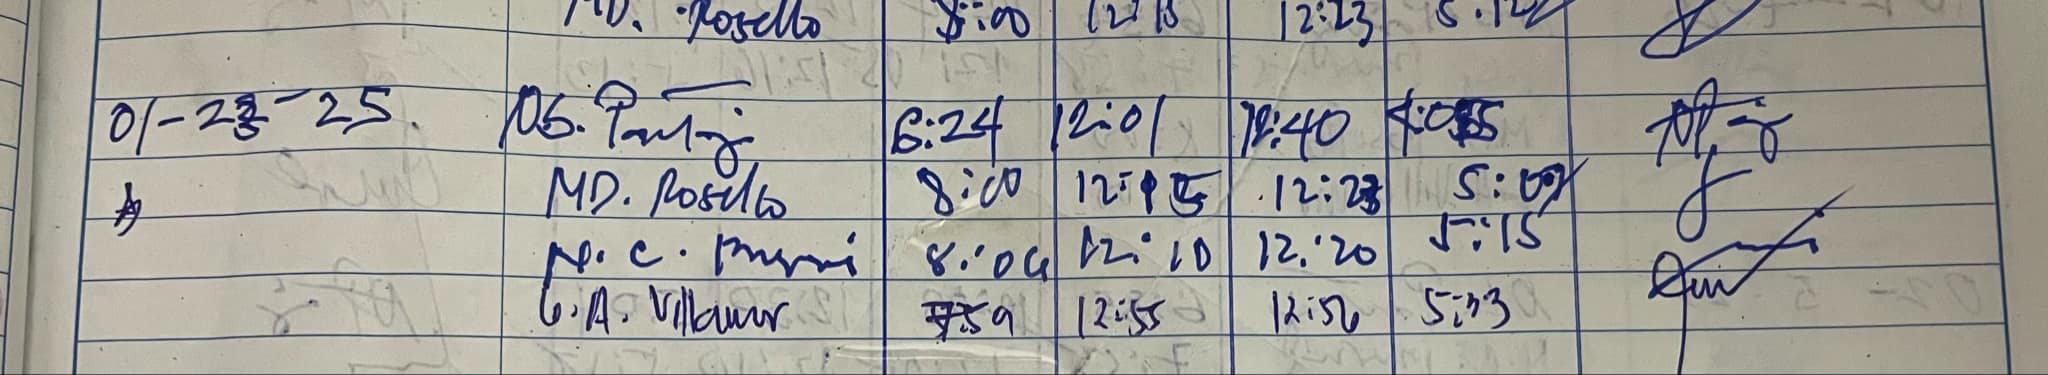 MD. Rosello 8:00 12:15 12:23 5:12
01-23-25. 6:24 12:01 12:40
MD. Rosello 8:00 12:15 12:23 5:09
N.C. 8:04 12:10 12:20 5:15
G.A. Villamor 7:59 12:55 12:56 5:33